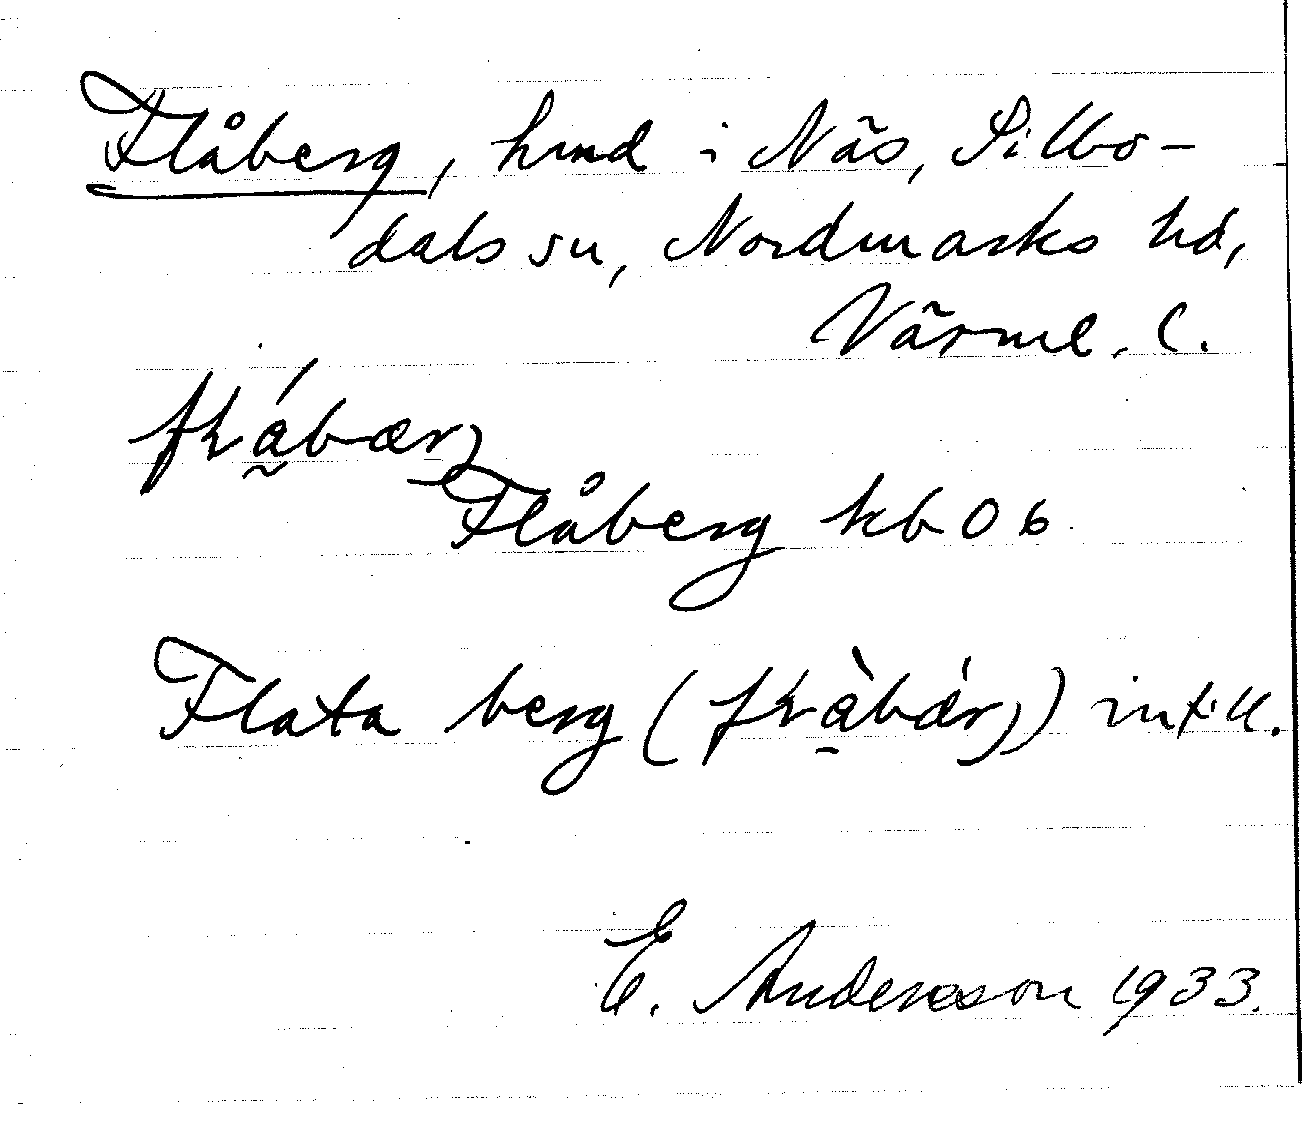 Flåberg, hmd i Näs, Silbo-
dals sn, Nordmarks hd,
Värml. l.
Flåberg kb 06
Flata berg ( ) intill.
E. Andersson 1933.